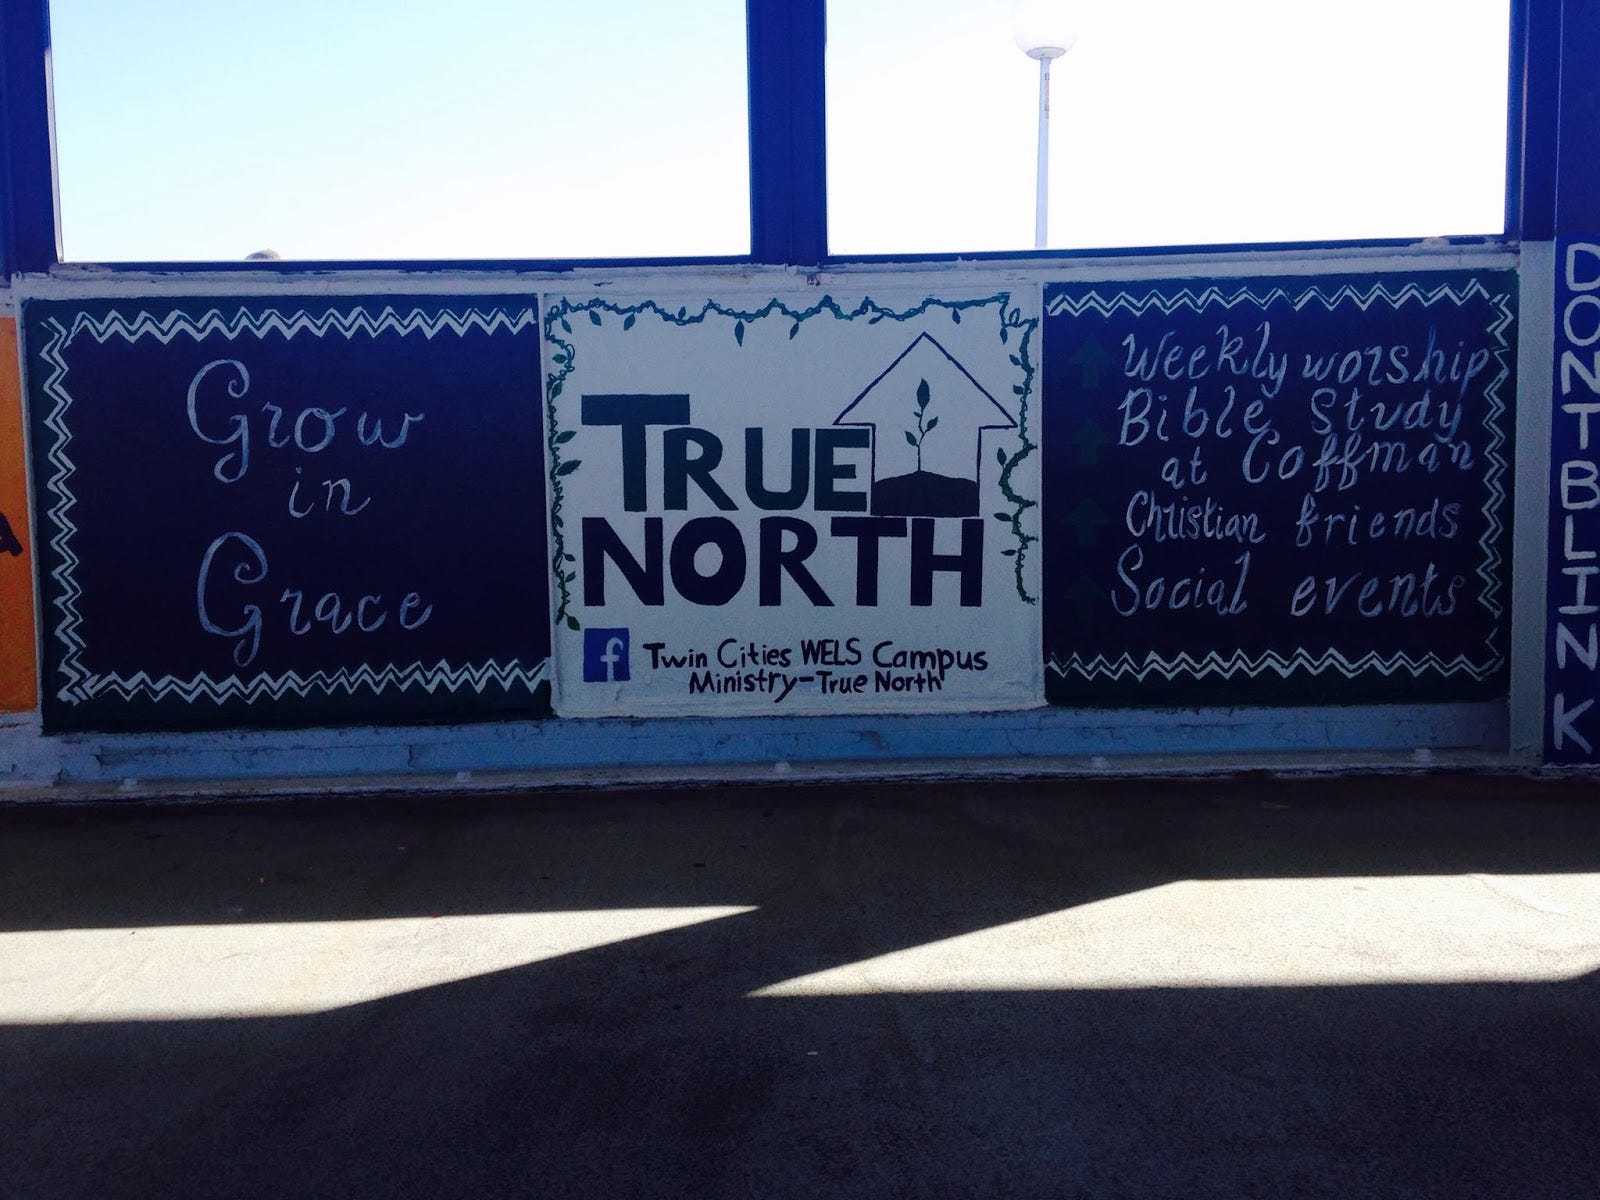 Grow
in
Grace
TRUE
NORTH
f Twin Cities WELS Campus
Ministry-True North
Weekly worship
Bible Study
at Coffman
Christian friends
Social events
DONT BLINK